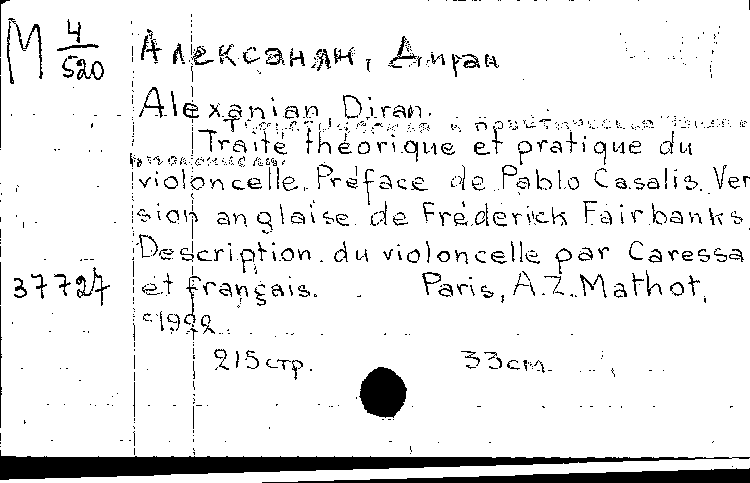 М 4/520
Алексанян, Диран
Alexanian Diran.
Теоретическая и практическая школа
виолончели.
Traité théorique et pratique du
violoncelle. Préface de Pablo Casalis. Ver
sion anglaise de Fréderick Fairbanks
Description du violoncelle par Caressa
37727
et français. Paris, A.Z. Mathot,
c1922
215 стр. 33 cm.